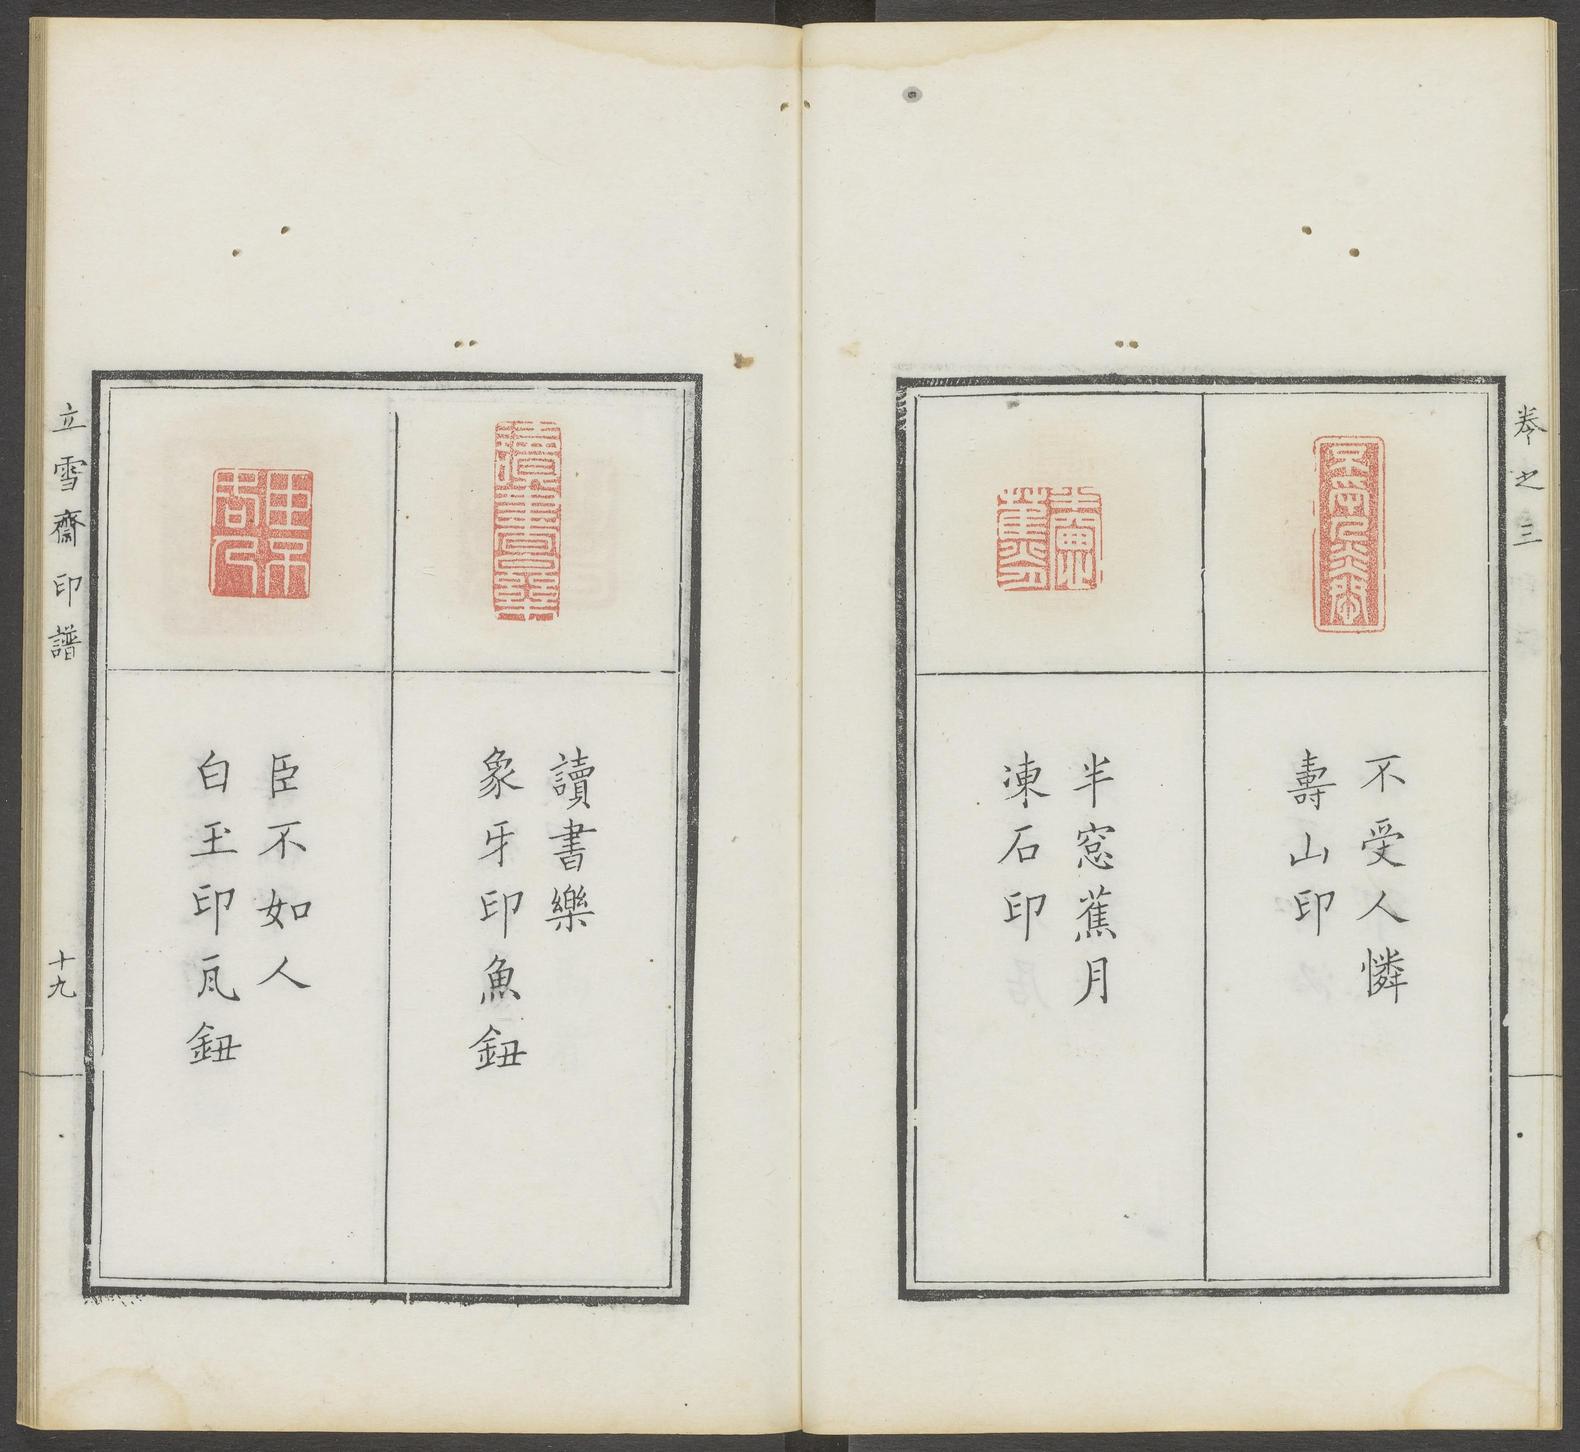 卷之三
不受人憐
壽山印
半窓蕉月
凍石印
讀書樂
象牙印魚鈕
臣不如人
白玉印瓦鈕
立雪齋印譜
十九